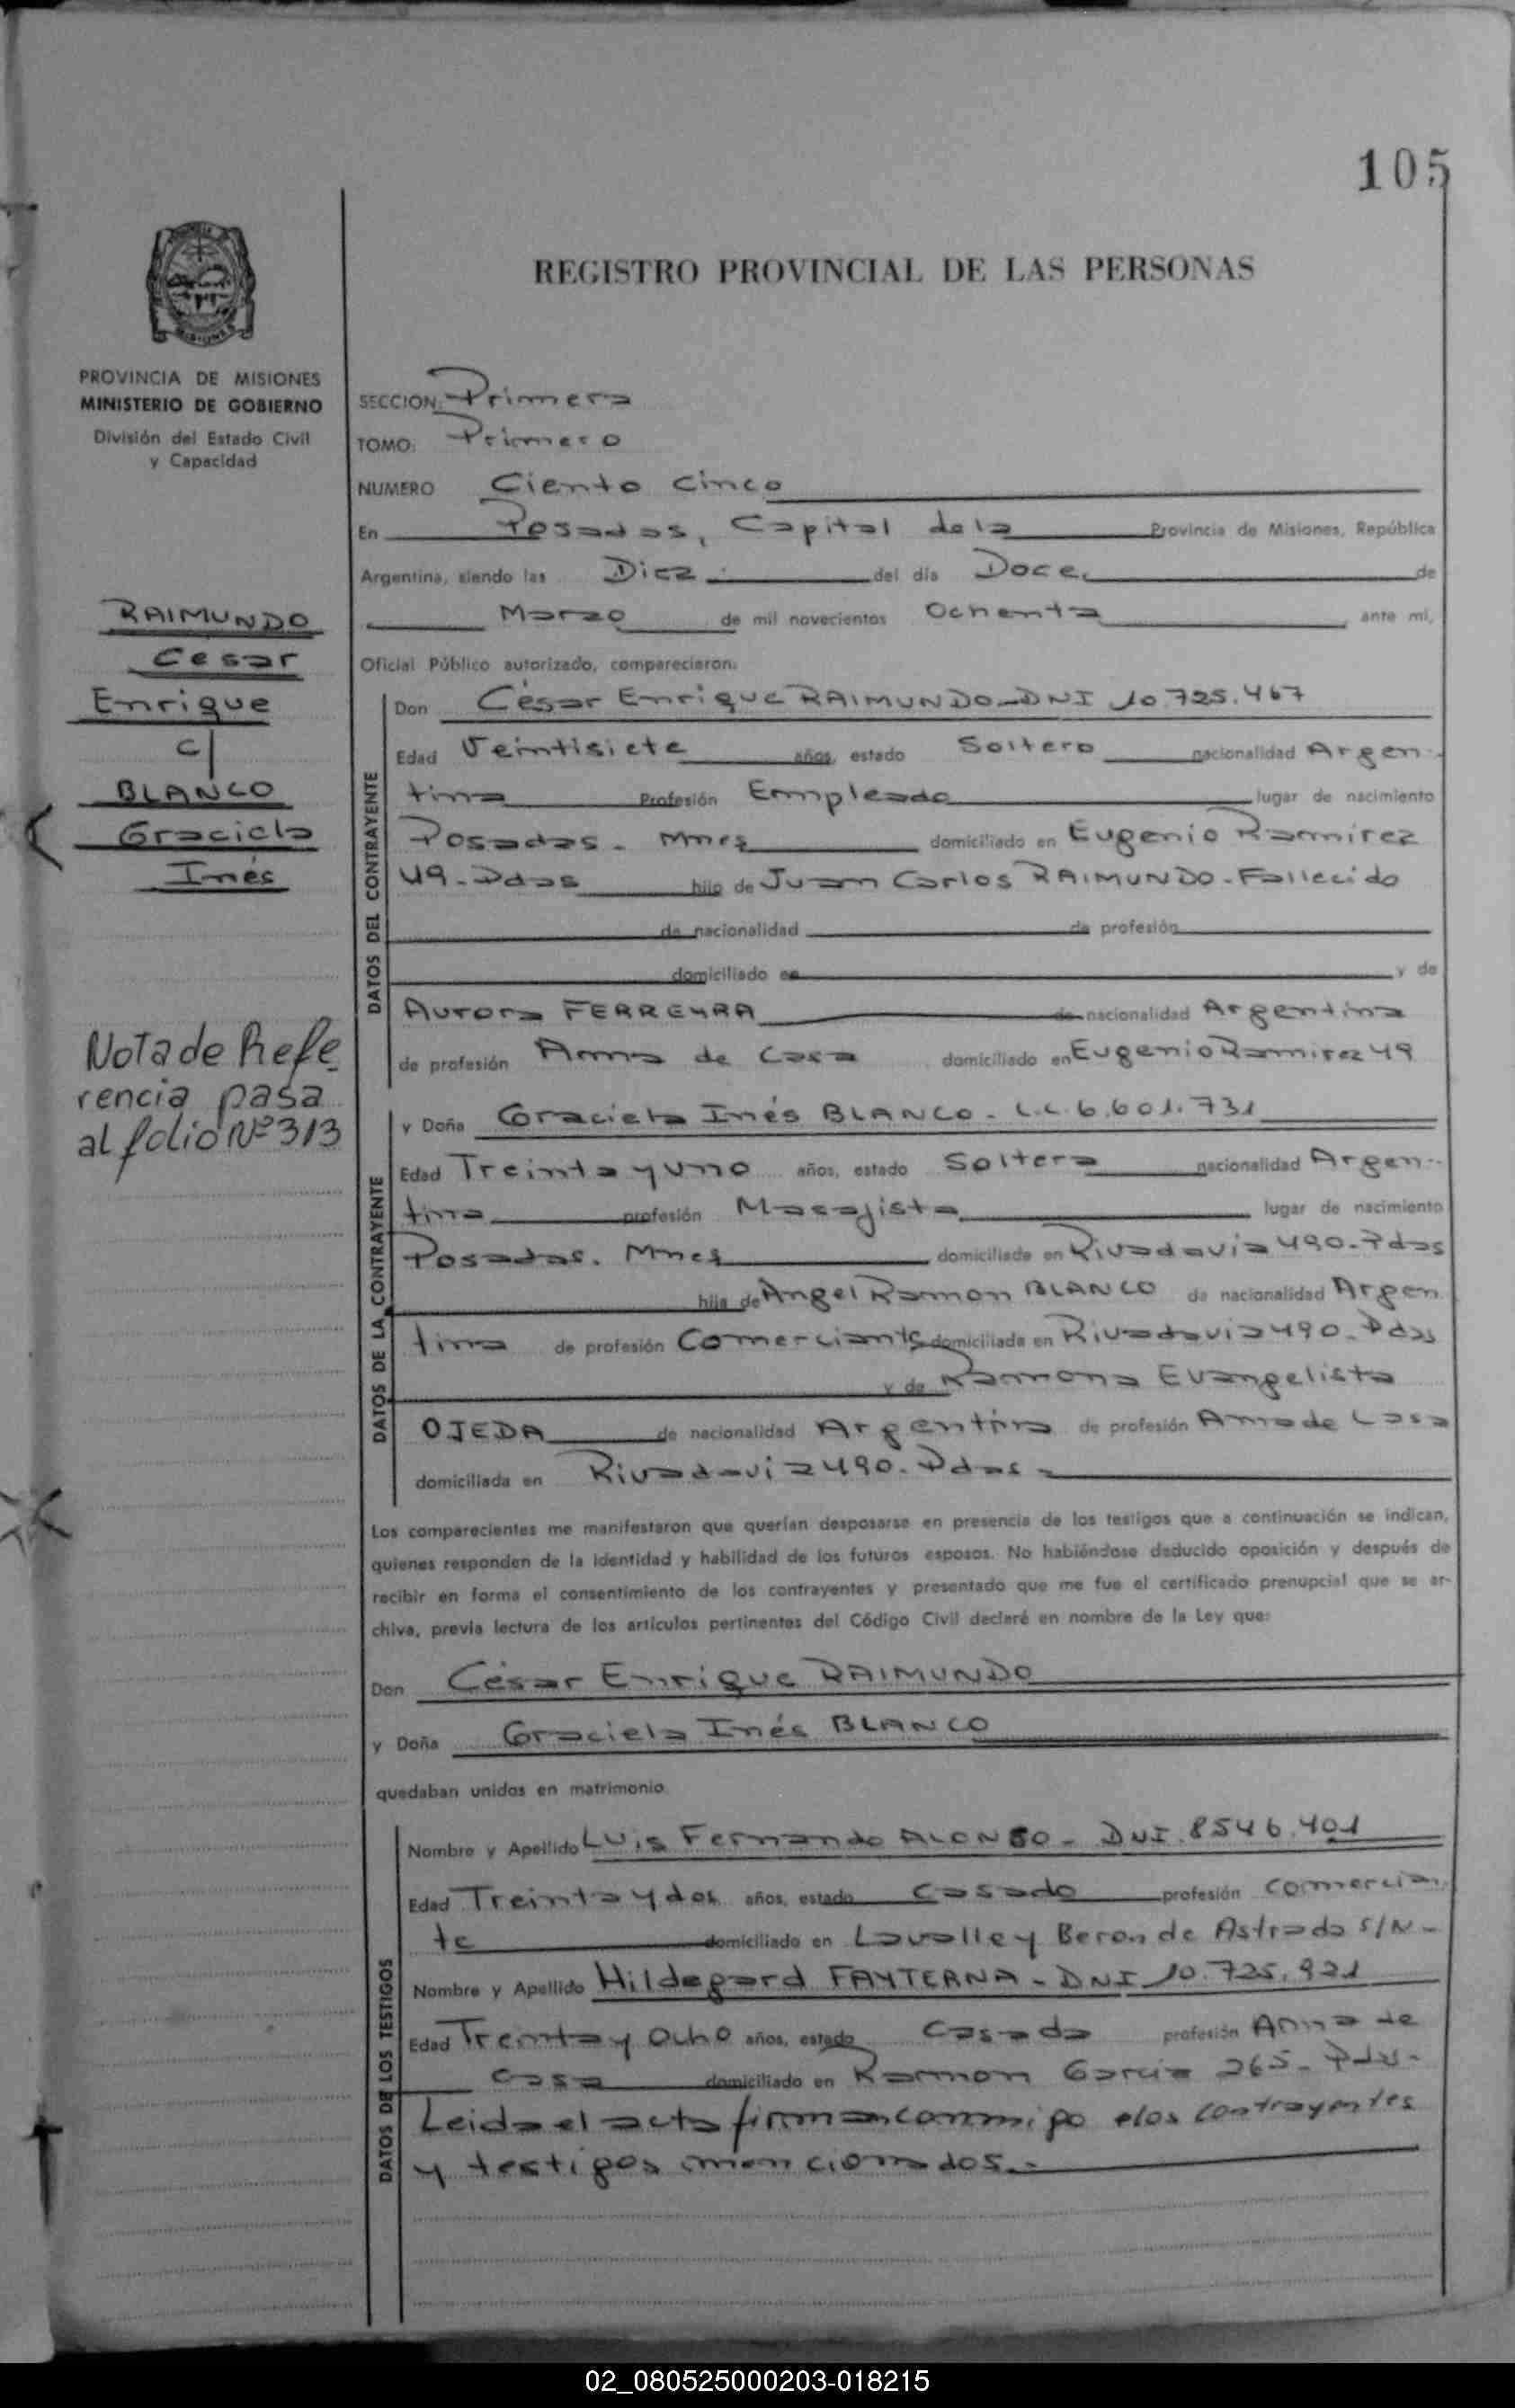 105
REGISTRO PROVINCIAL DE LAS PERSONAS
PROVINCIA DE MISIONES
MINISTERIO DE GOBIERNO
División del Estado Civil
y Capacidad
RAIMUNDO
Cesar
Enrique
c/
BLANCO
Graciela
Inés
Nota de Refe
rencia pasa
al folio Nº 313
SECCION: Primera
TOMO: Primero
NUMERO Ciento cinco
En Posadas, Capital de la Provincia de Misiones, República
Argentina, siendo las Diez del día Doce de
Marzo de mil novecientos Ochenta ante mí,
Oficial Público autorizado, comparecieron:
DATOS DEL CONTRAYENTE
Don César Enrique RAIMUNDO-DNI 10.725.467
Edad Veintisiete años, estado Soltero nacionalidad Argen-
tina Profesión Empleado lugar de nacimiento
Posadas. Mnes domiciliado en Eugenio Ramírez
49-Pdas hijo de Juan Carlos RAIMUNDO-Fallecido
de nacionalidad de profesión
domiciliado en y de
Aurora FERREYRA de nacionalidad Argentina
de profesión Ama de Casa domiciliado en Eugenio Ramirez 49
DATOS DE LA CONTRAYENTE
y Doña Graciela Inés BLANCO- L.C. 6.601.731
Edad Treinta y uno años, estado Soltera nacionalidad Argen-
tina profesión Masajista lugar de nacimiento
Posadas. Mnes domiciliada en Rivadavia 490-Pdas
hija de Angel Ramon BLANCO de nacionalidad Argen
tina de profesión Comerciante domiciliada en Rivadavia 490-Pdas
y de Ramona Evangelista
OJEDA de nacionalidad Argentina de profesión Ama de Casa
domiciliada en Rivadavia 490-Pdas-
Los comparecientes me manifestaron que querían desposarse en presencia de los testigos que a continuación se indican,
quienes responden de la identidad y habilidad de los futuros esposos. No habiéndose deducido oposición y después de
recibir en forma el consentimiento de los contrayentes y presentado que me fue el certificado prenupcial que se ar-
chiva, previa lectura de los artículos pertinentes del Código Civil declaré en nombre de la Ley que:
Don César Enrique RAIMUNDO
y Doña Graciela Inés BLANCO
quedaban unidos en matrimonio.
DATOS DE LOS TESTIGOS
Nombre y Apellido Luis Fernando ALONSO- DNI. 8546.401
Edad Treinta y dos años, estado Casado profesión comercian
te domiciliado en Lavalle y Beron de Astrada S/N-
Nombre y Apellido Hildegard FAYTERNA- DNI 10.725.921
Edad Treinta y Ocho años, estado Casada profesión Ama de
casa domiciliado en Ramon Garcia 265- Pdas-
Leida el acta firman conmigo los contrayentes
y testigos mencionados.-
02_080525000203-018215